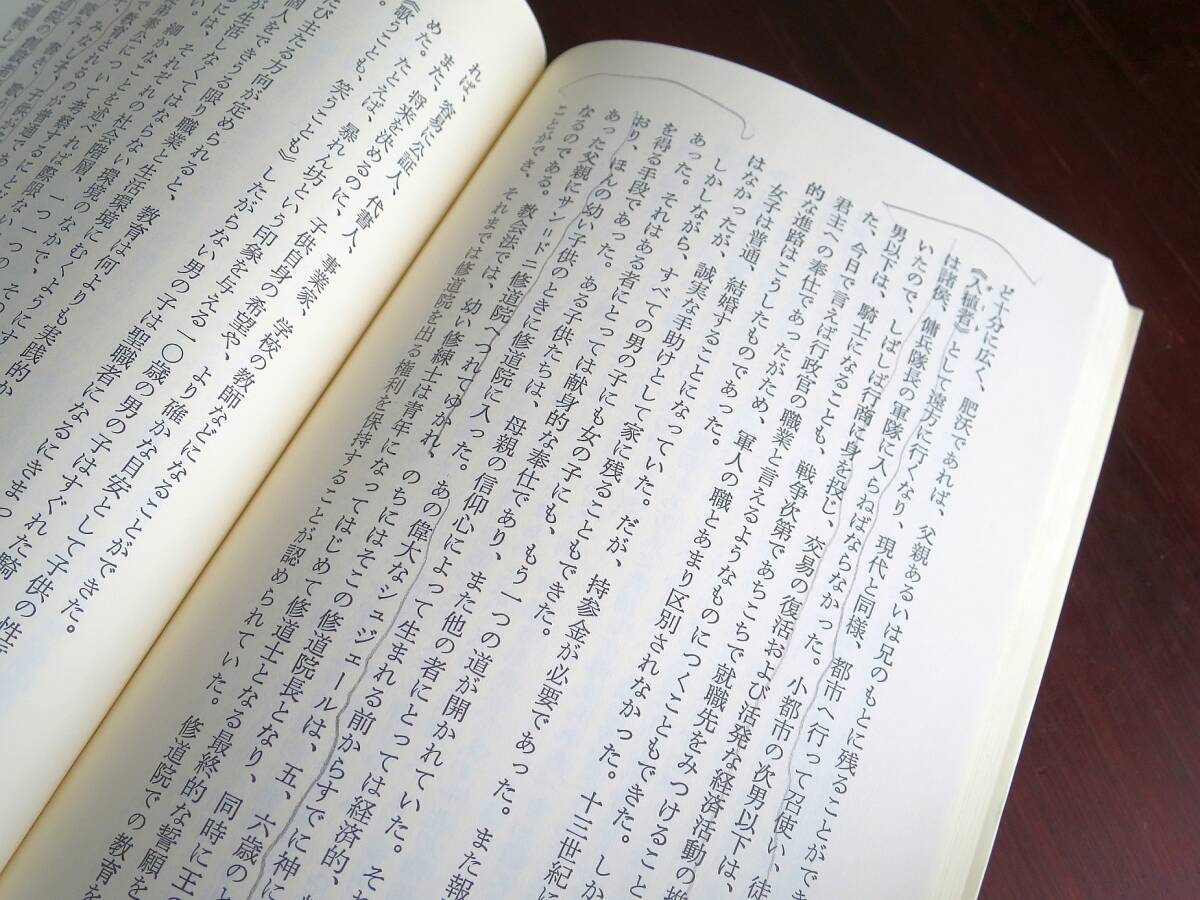 ど十分に広く、肥沃であれば、父親あるいは兄のもとに残ることができ
《入植者》として遠方に行くなり、現代と同様、都市へ行って召使い、徒
は諸侯、傭兵隊長の軍隊に入らねばならなかった。小都市の次男以下は、
いたので、しばしば行商に身を投じ、交易の復活および活発な経済活動の推
男以下は、騎士になることも、戦争次第であちこちで就職先をみつけること
た、今日で言えば行政官の職業と言えるようなものにつくこともできた。しか
君主への奉仕であったがため、軍人の職とあまり区別されなかった。十三世紀に
的な進路はこうしたものであった。
女子は普通、結婚することになっていた。だが、持参金が必要であった。また報
はなかったが、誠実な手助けとして家に残ることもできた。
しかしながら、すべての男の子にも女の子にも、もう一つの道が開かれていた。それ
あった。それはある者にとっては献身的な奉仕であり、また他の者にとっては経済的、
を得る手段であった。ある子供たちは、母親の信仰心によって生まれる前からすでに神に
おり、ほんの幼い子供のときに修道院に入った。あの偉大なシュジェールは、五、六歳のと
あった父親にサン=ドニ修道院へつれてゆかれ、のちにはそこの修道院長となり、同時に王の
なるのである。教会法では、幼い修練士は青年になってはじめて修道士となる最終的な誓願を
ことができ、それまでは修道院を出る権利を保持することが認められていた。修道院での教育を
れば、容易に公証人、代書人、事業家、学校の教師などになることができた。
また、将来を決めるのに、子供自身の希望や、より確かな目安として子供の性
めた。たとえば、暴れん坊という印象を与える一〇歳の男の子はすぐれた騎
《歌うことも、笑うことも》したがらない男の子は聖職者になるにきまっ
。
たび主たる方向が定められると、教育は何よりも実践的
個人をできうる限り職業と生活環境にむくようにす
が生活しなくてはならない環境のなかで、